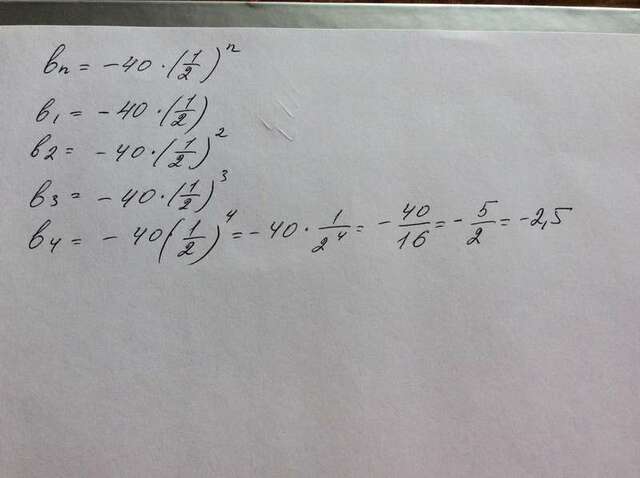 bn = -40 · (1/2)^n
b1 = -40 · (1/2)
b2 = -40 · (1/2)^2
b3 = -40 · (1/2)^3
b4 = -40(1/2)^4 = -40 · 1/2^4 = -40/16 = -5/2 = -2,5